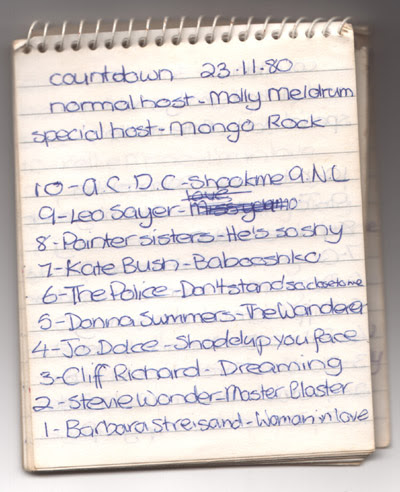 countdown 23.11.80
normal host - Molly Meldrum
special host - Mongo Rock
10 - a.C.D.C - Shook me a.N.L
love
9 - Leo Sayer -
8 - Pointer sisters - He's so shy
7 - Kate Bush - Babooshka
6 - The Police - Don't stand so close to me
5 - Donna Summers - The Wanderer
4 - Jo Dolce - Shadelup you face
3 - Cliff Richard - Dreaming
2 - Stevie Wonder - Master Blaster
1 - Barbara Streisand - Woman in love